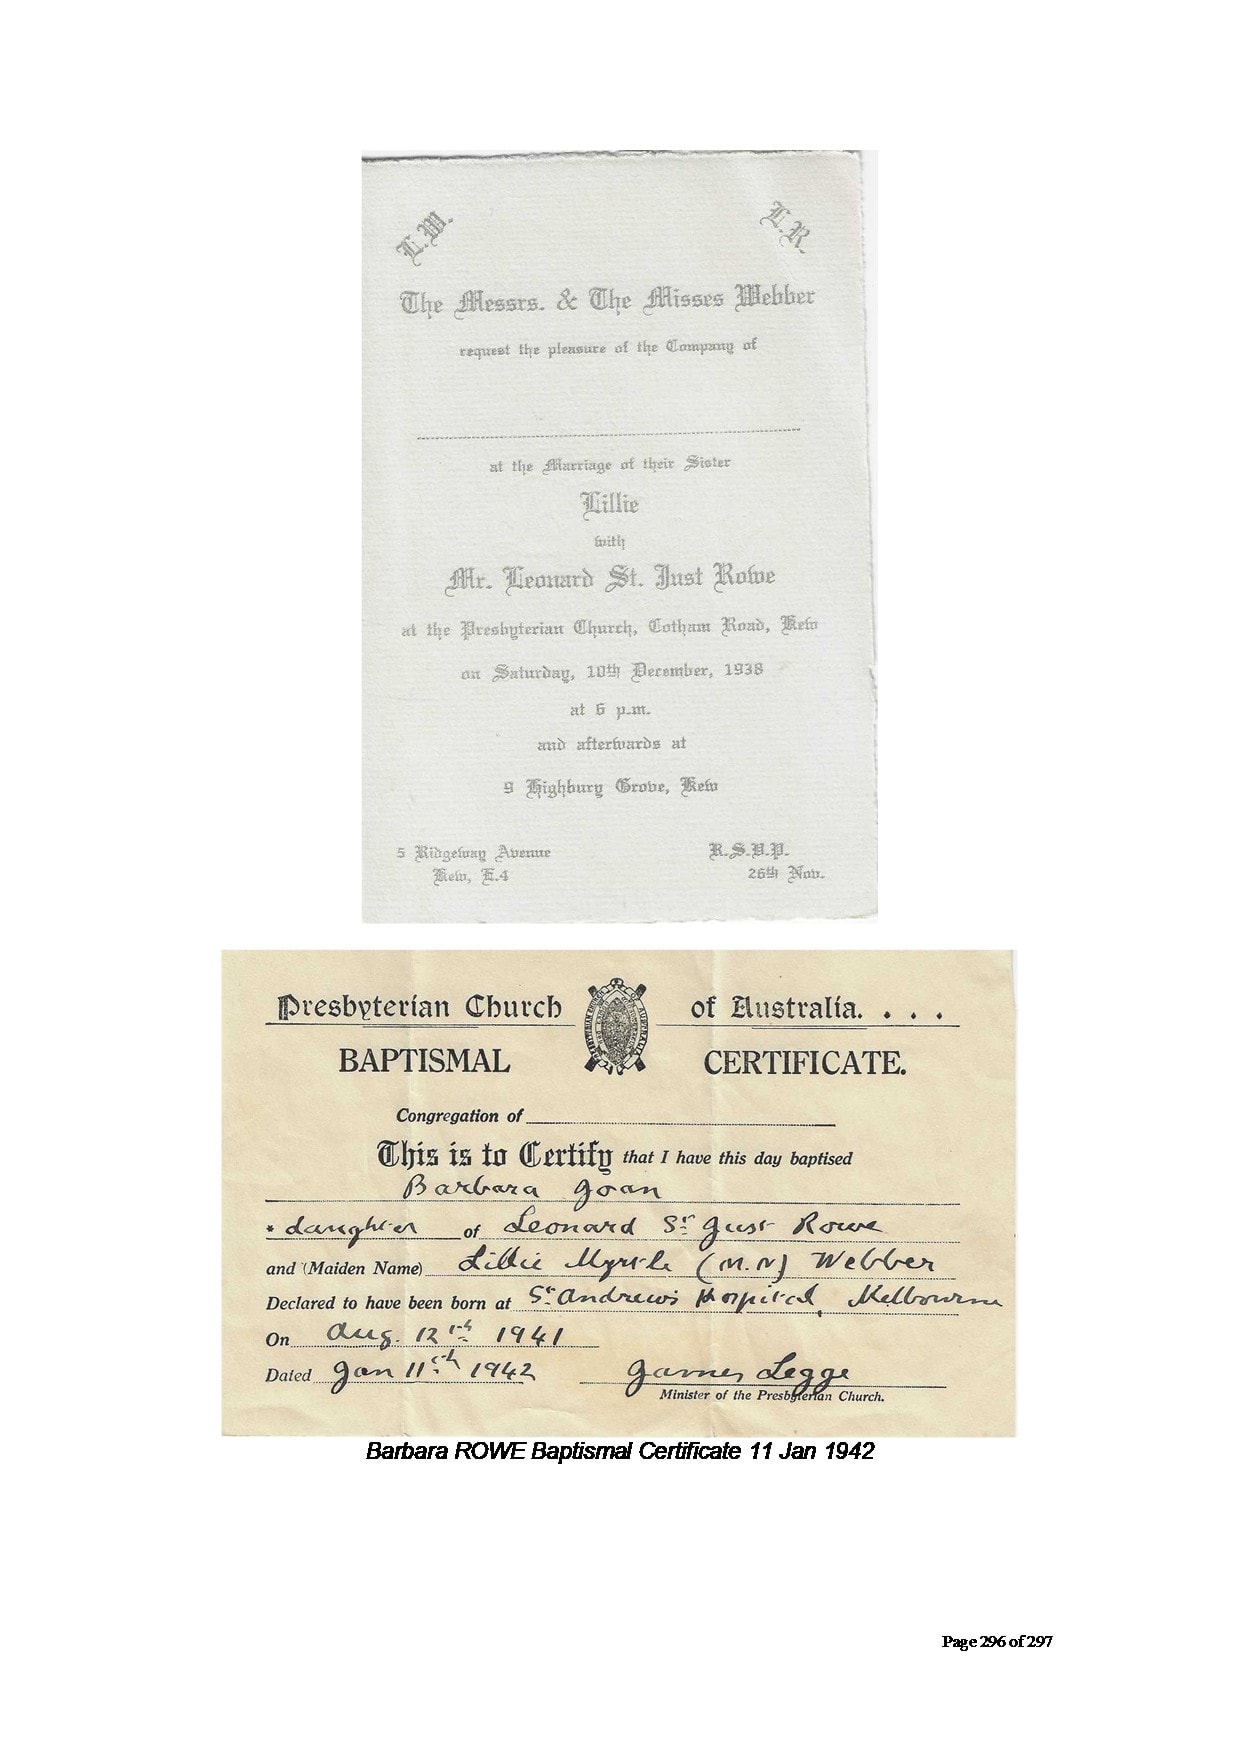 L.W.
L.R.
The Messrs. & The Misses Webber
request the pleasure of the Company of
at the Marriage of their Sister
Lillie
with
Mr. Leonard St. Just Rowe
at the Presbyterian Church, Cotham Road, Kew
on Saturday, 10th December, 1938
at 6 p.m.
and afterwards at
9 Highbury Grove, Kew
5 Ridgeway Avenue
Kew, E.4
R.S.V.P.
26th Nov.
Presbyterian Church of Australia. . . .
BAPTISMAL CERTIFICATE.
Congregation of
This is to Certify that I have this day baptised
Barbara Joan
* daughter of Leonard St Just Rowe
and (Maiden Name) Lillie Myrtle (M.N) Webber
Declared to have been born at St Andrew's Hospital, Melbourne
On Aug. 12th 1941
Dated Jan 11th 1942 James Legge
Minister of the Presbyterian Church.
Barbara ROWE Baptismal Certificate 11 Jan 1942
Page 296 of 297